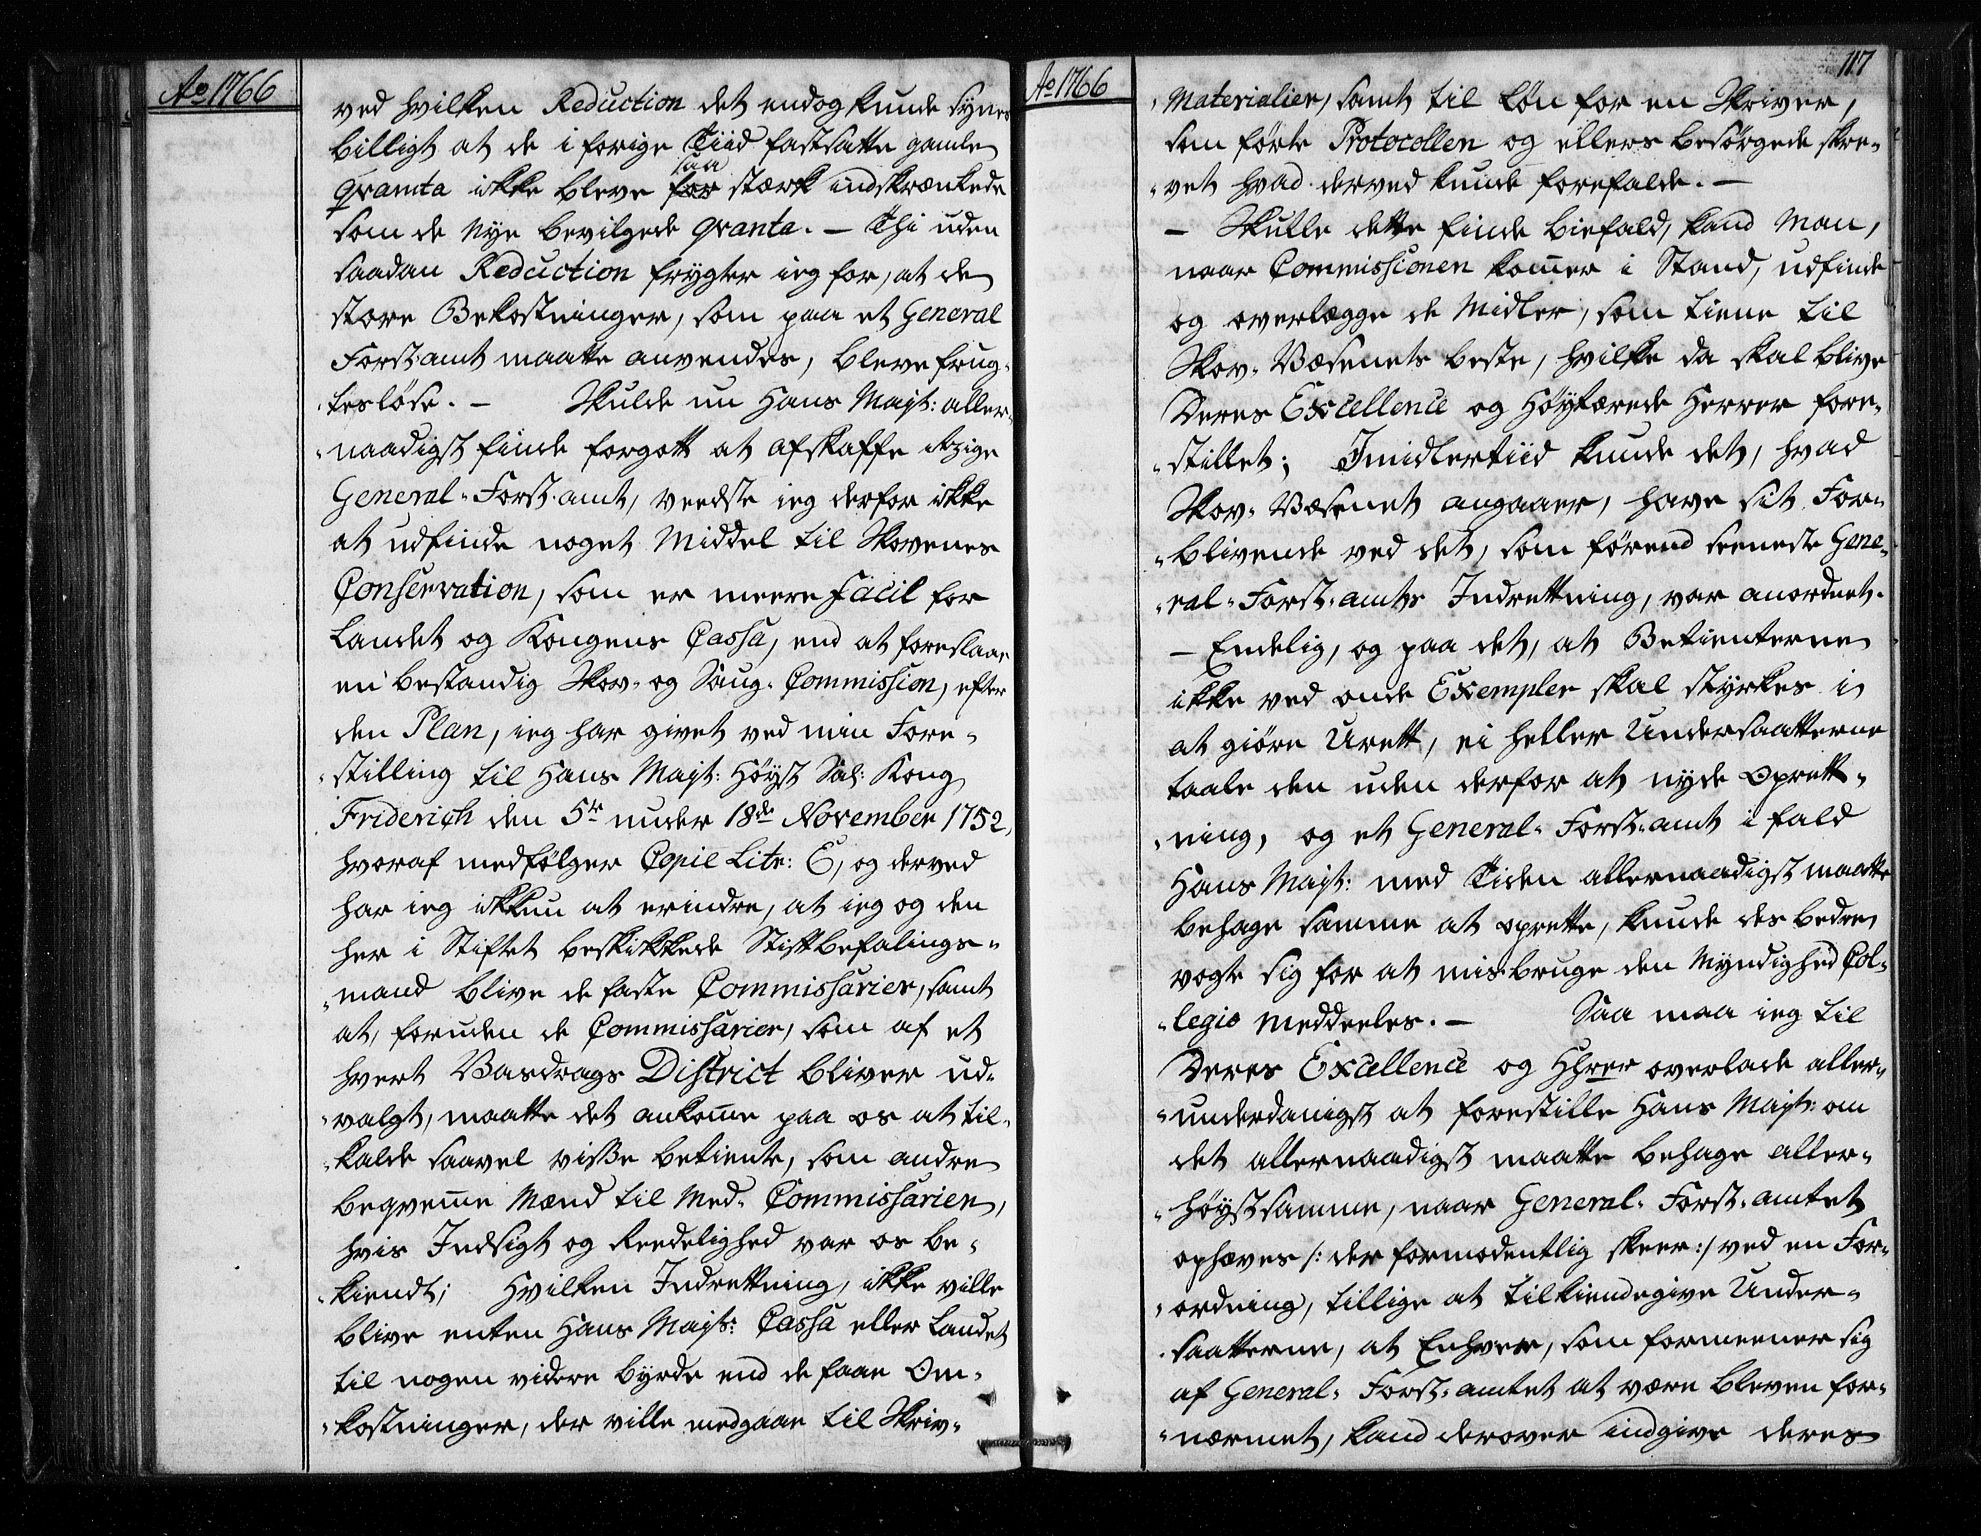 Ao 1766
ved hvilken Reduction det endog kunde synes
billigt at de i forige Tiid fastsatte gamle
Qvanta ikke bleve for saa stærk indskrænkede
som de Nye bevilgede Qvanta. – Thi uden
saadan Reduction frygter ieg for, at de
store Bekostninger, som paa et General
Forst-amt maatte anvendes, bleve frug-
-tesløse. – Skulde nu Hans Mayt: aller-
-naadigst finde forgott at afskaffe itzige
General-Forst-amt, veedste ieg derfor ikke
at udfinde noget Middel til Skovenes
Conservation, som er meere facil for
Landet og Kongens Cassa, end at foreslaae
en bestandig Skov- og Saug-Commission, efter
den Plan, ieg har givet ved min Fore-
-stilling til Hans Mayt: Høyst Sal: Kong
Friderich den 5te under 18de November 1752,
hvoraf medfølger Copie Litr: C, og derved
har ieg ikkun at erindre, at ieg og den
her i Stiftet beskikkede Stiftbefalings-
-mand blive de faste Commissarier, samt
at, foruden de Commissarier, som af et
hvert Vasdrags District bliver ud-
-valgt, maatte det ankome paa os at til-
-kalde saavel visse betiente, som andre
beqveme Mænd til Med-Commissarier,
hvis Indsigt og Reedelighed var os be-
-kiendt; Hvilken Indrettning, ikke ville
blive enten Hans Mayts: Cassa eller Landet
til nogen videre byrde end de faae Om-
-kostninger, der ville medgaae til Skriv-
Ao 1766
117
-Materialier, samt til Løn for en Skriver,
som førte Protocollen og ellers besørgede skre-
-vet hvad derved kunde forefalde. –
– Skulle dette finde biefald, kand Man,
naar Commissionen komer i Stand, udfinde
og overlægge de Midler, som tiene til
Skov-Væsenets beste, hvilke da skal blive
Deres Excellence og Høytærede Herrer fore-
-stillet; Imidlertiid kunde det, hvad
Skov-Væsenet angaaer, have sit For-
-blivende ved det, som førend seeneste Gene-
-ral-Forst-amts Indrettning, var anordnet.
– Endelig, og paa det, at Betienterne
ikke ved onde Exempler skal styrkes i
at giøre Urett, ei heller Undersaatterne
taale den uden derfor at nyde Oprett-
-ning, og et General-Forst-amt i fald
Hans Mayt: med Tiden allernaadigst maatte
behage samme at oprette, kunde des bedre
vogte sig for at misbruge den Myndighed Col-
-legio meddeeles. – Saa maa ieg til
Deres Excellence og Hhrer overlade aller-
-underdanigst at forestille Hans Mayt: om
det allernaadigst maatte behage Aller-
-høystsamme, naar General-Forst-amtet
ophæves /: der formodentlig skeer :/ ved en For-
-ordning, tillige at tilkiendegive Under-
-saatterne, at Enhver, som formeener sig
af General-Forst-amtet at være bleven for-
-nærmet, kand derover indgive deres